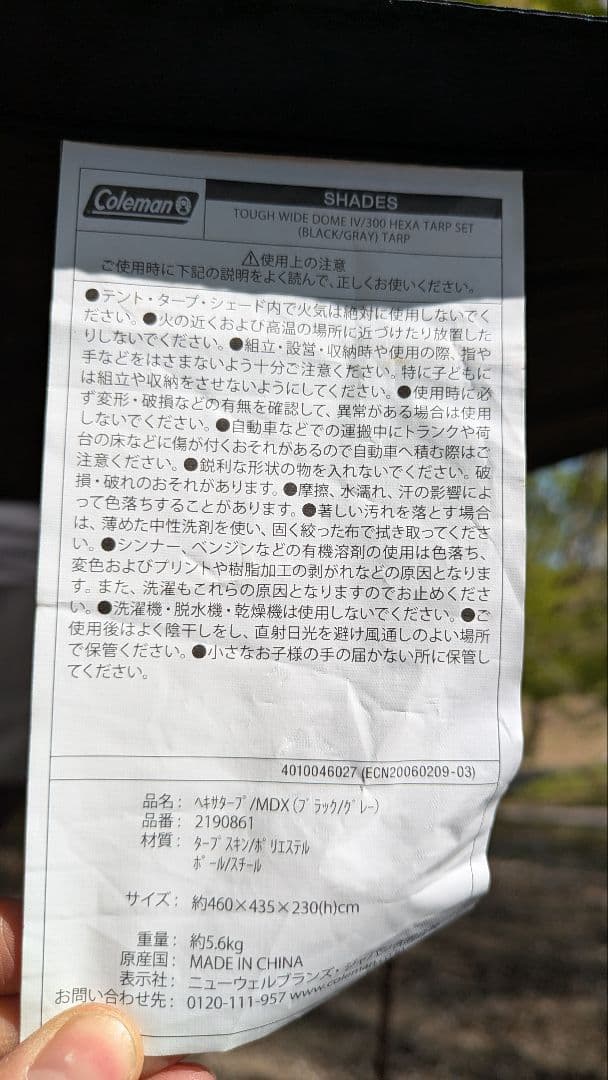 Coleman
SHADES
TOUGH WIDE DOME IV/300 HEXA TARP SET
(BLACK/GRAY) TARP
⚠使用上の注意
ご使用時に下記の説明をよく読んで、正しくお使いください。
●テント・タープ・シェード内で火気は絶対に使用しないでく
ださい。●火の近くおよび高温の場所に近づけたり放置した
りしないでください。●組立・設営・収納時や使用の際、指や
手などをはさまないよう十分ご注意ください。特に子どもに
は組立や収納をさせないようにしてください。●使用時に必
ず変形・破損などの有無を確認して、異常がある場合は使用
しないでください。●自動車などでの運搬中にトランクや荷
台の床などに傷が付くおそれがあるので自動車へ積む際はご
注意ください。●鋭利な形状の物を入れないでください。破
損・破れのおそれがあります。●摩擦、水濡れ、汗の影響によ
って色落ちすることがあります。●著しい汚れを落とす場合
は、薄めた中性洗剤を使い、固く絞った布で拭き取ってくださ
い。●シンナー、ベンジンなどの有機溶剤の使用は色落ち、
変色およびプリントや樹脂加工の剥がれなどの原因となりま
す。また、洗濯もこれらの原因となりますのでお止めくださ
い。●洗濯機・脱水機・乾燥機は使用しないでください。●ご
使用後はよく陰干しをし、直射日光を避け風通しのよい場所
で保管ください。●小さなお子様の手の届かない所に保管し
てください。
4010046027 (ECN20060209-03)
品名： ﾍｷｻﾀｰﾌﾟ/MDX(ﾌﾞﾗｯｸ/ｸﾞﾚｰ)
品番： 2190861
材質： ﾀｰﾌﾟｽｷﾝ/ﾎﾟﾘｴｽﾃﾙ
ﾎﾟｰﾙ/ｽﾁｰﾙ
サイズ： 約460×435×230(h)cm
重量： 約5.6kg
原産国： MADE IN CHINA
表示社： ニューウェルブランズ・ジャパン
お問い合わせ先： 0120-111-957 www.coleman